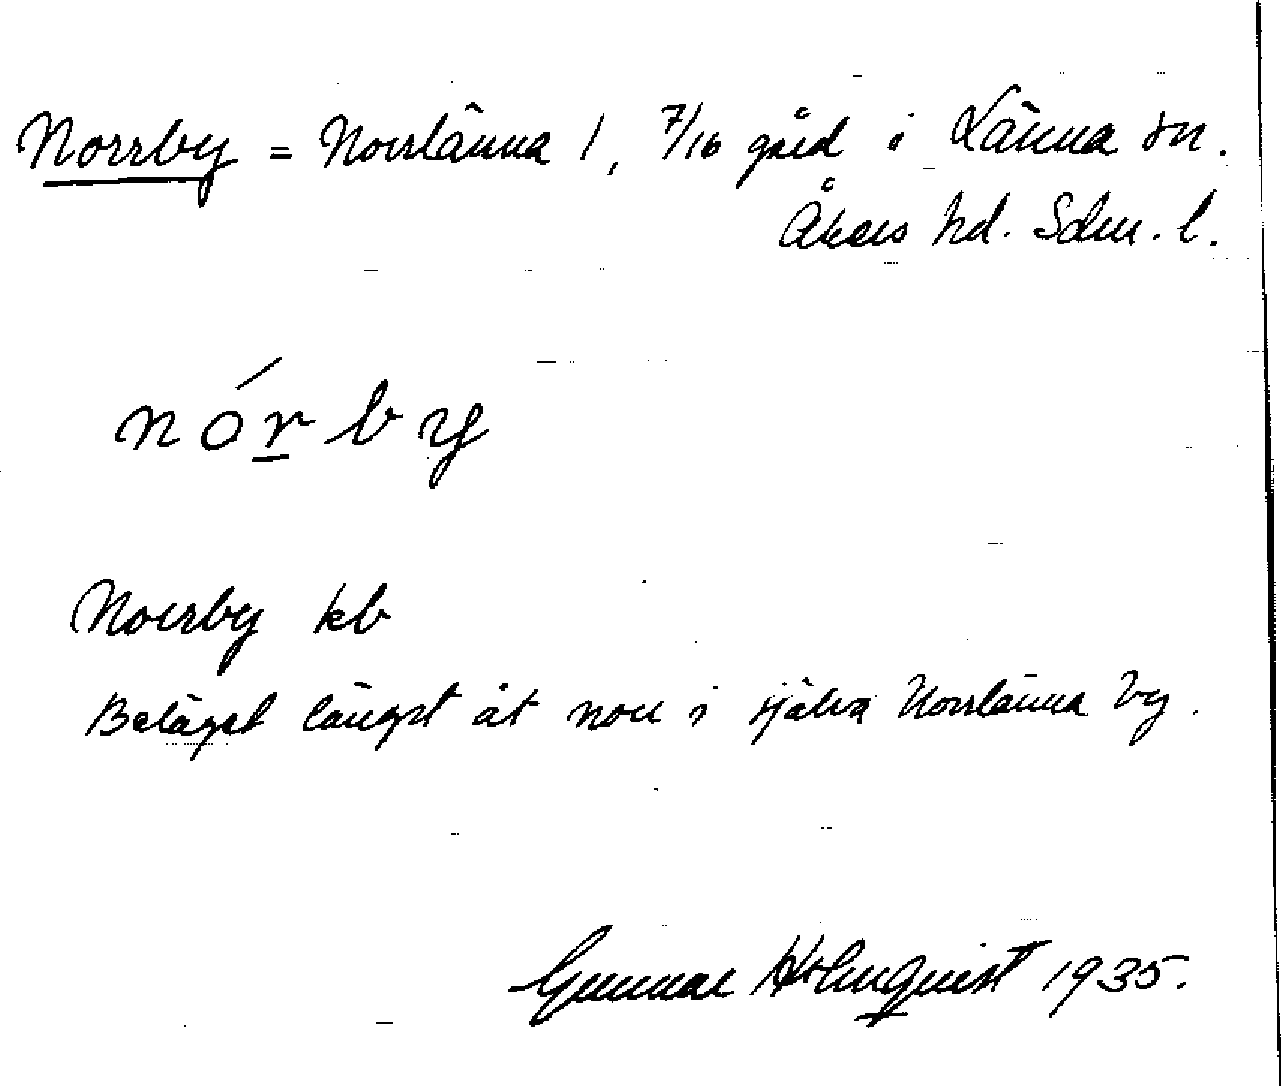 Norrby = Norrlänna 1, 7/16 gård i Länna sn.
Åkers hd. Sdm. l.
nórby
Norrby kb
Beläget längst åt norr i själva Norrlänna by.
Gunnar Holmquist 1935.